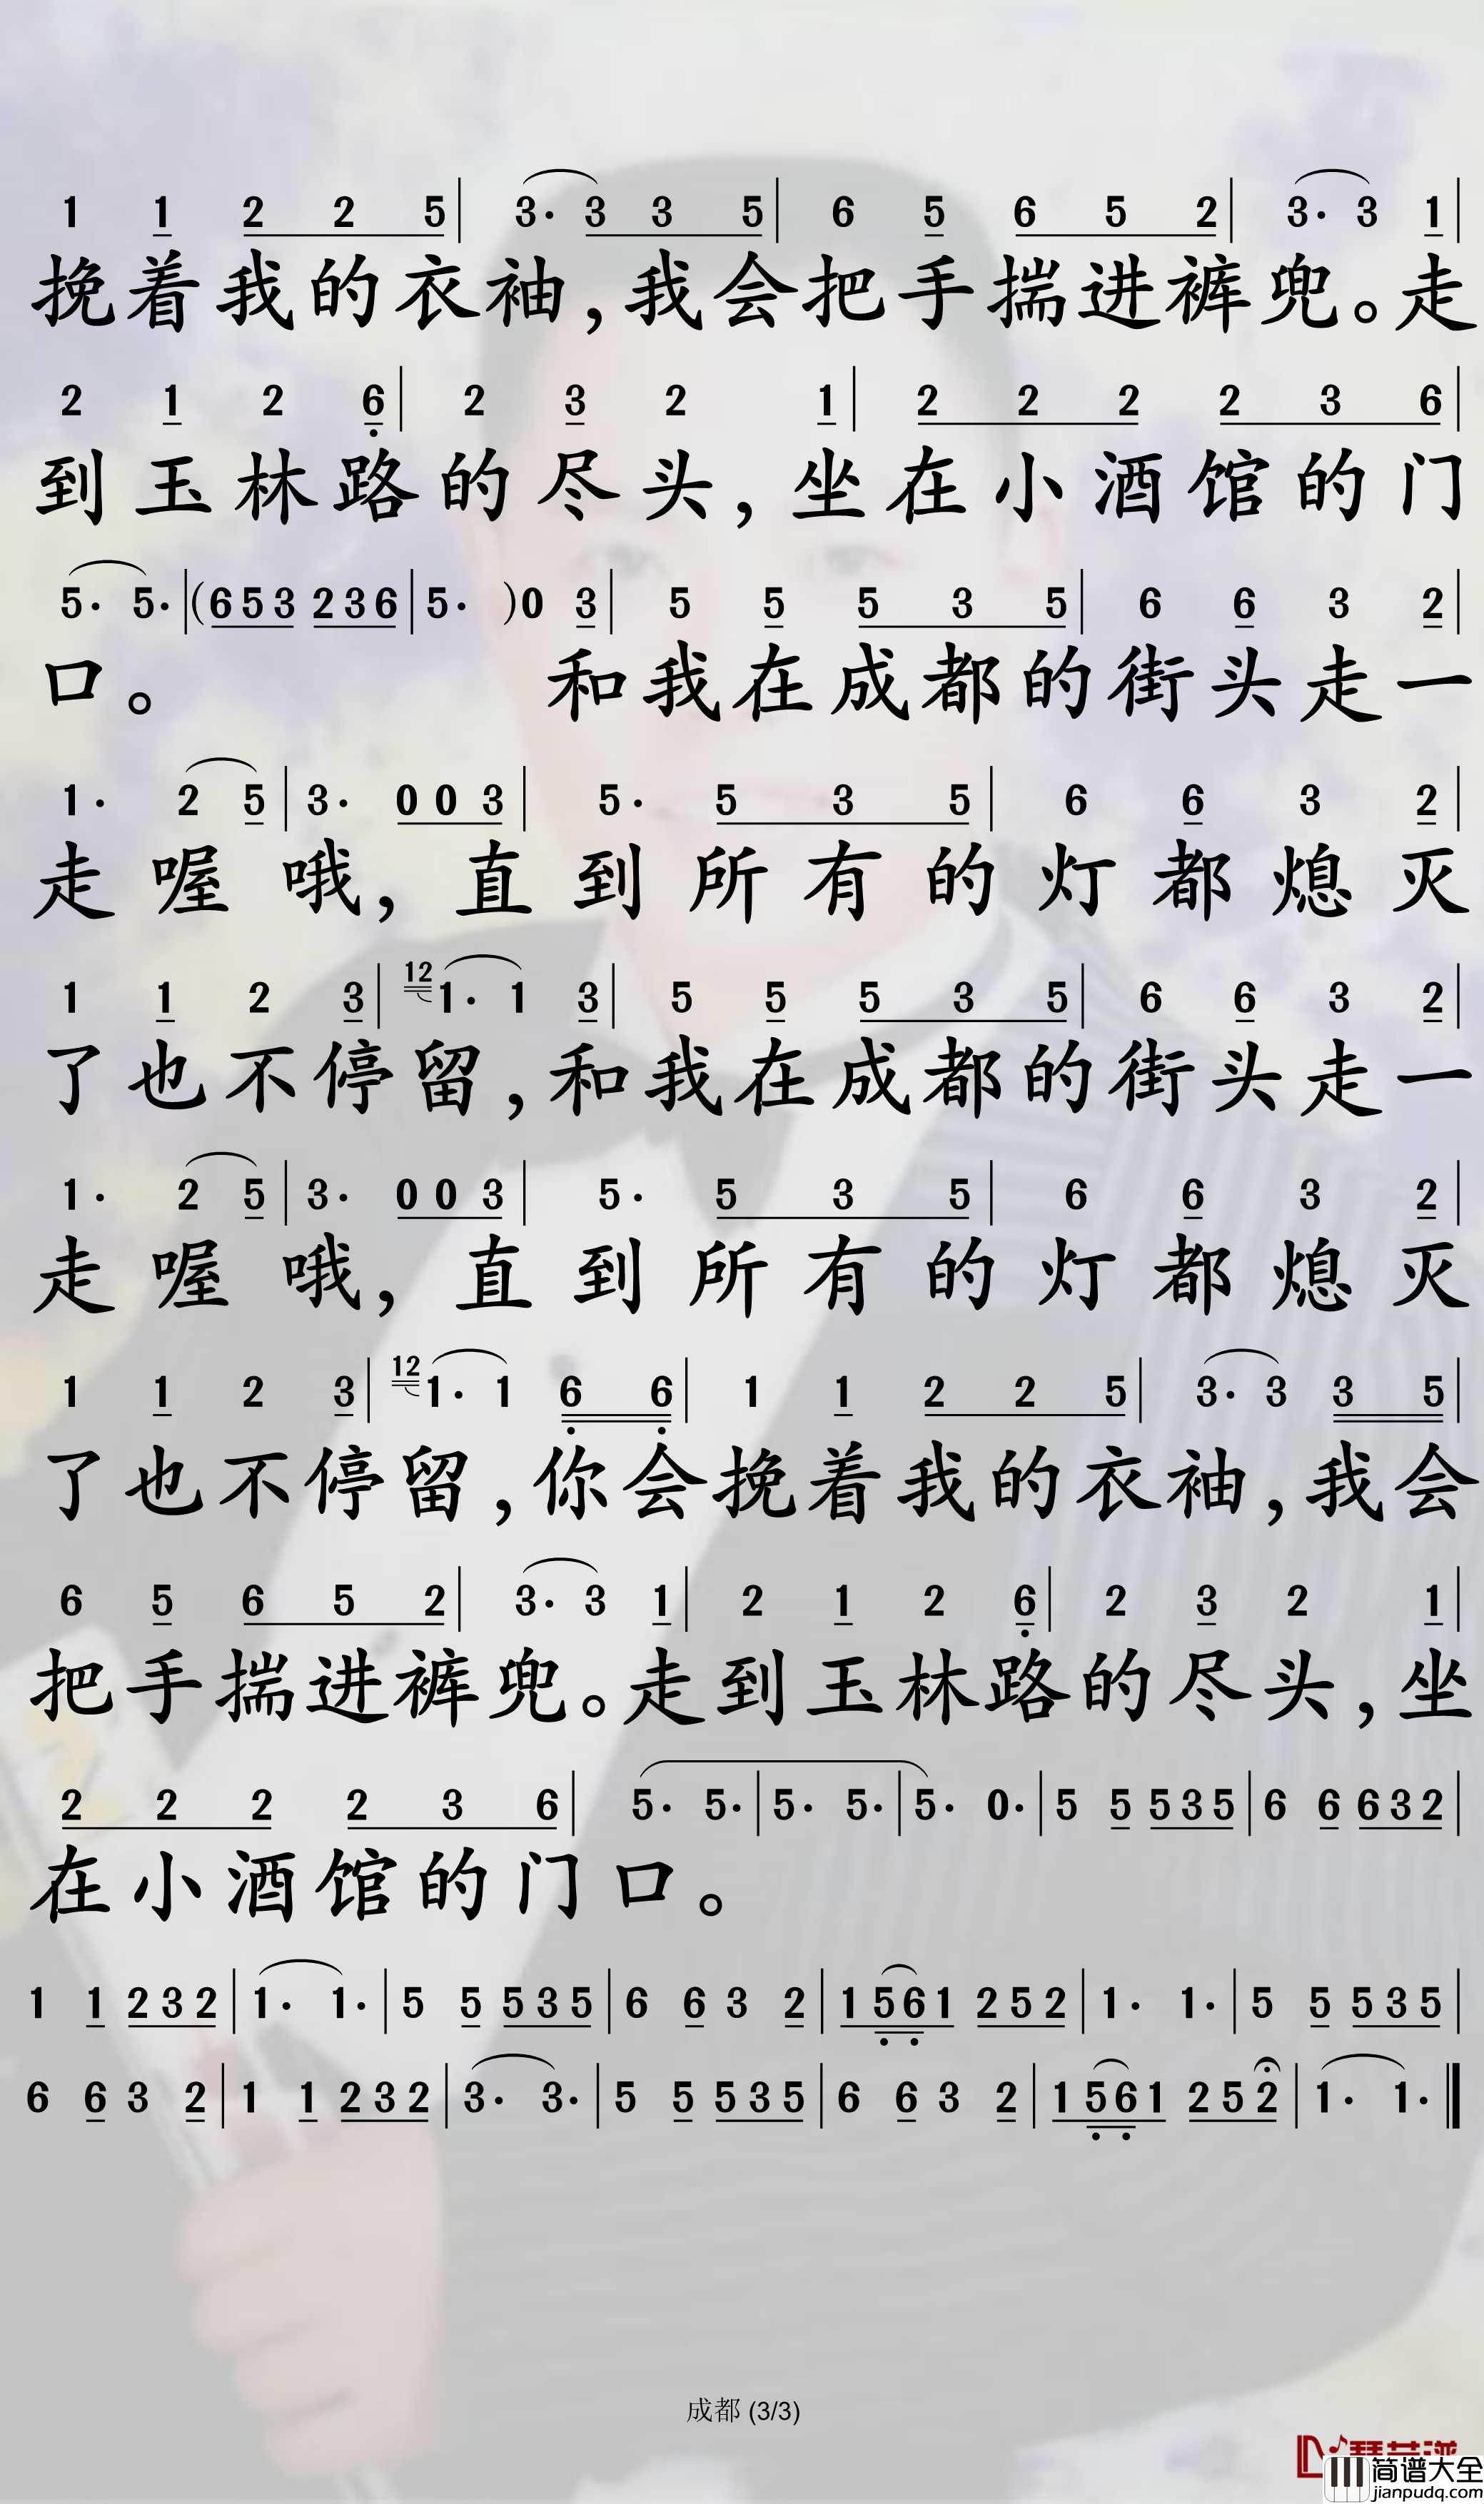 1 1 2 2 5 | 3· 3 3 5 | 6 5 6 5 2 | 3· 3 1 |
挽着我的衣袖,我会把手揣进裤兜。走
2 1 2 6 | 2 3 2 1 | 2 2 2 2 3 6 |
到玉林路的尽头,坐在小酒馆的门
5· 5· | (6 5 3 2 3 6 | 5· ) 0 3 | 5 5 5 3 5 | 6 6 3 2 |
口。 和我在成都的街头走一
1· 2 5 | 3· 0 0 3 | 5· 5 3 5 | 6 6 3 2 |
走喔哦,直到所有的灯都熄灭
1 1 2 3 | 12 1· 1 3 | 5 5 5 3 5 | 6 6 3 2 |
了也不停留,和我在成都的街头走一
1· 2 5 | 3· 0 0 3 | 5· 5 3 5 | 6 6 3 2 |
走喔哦,直到所有的灯都熄灭
1 1 2 3 | 12 1· 1 6 6 | 1 1 2 2 5 | 3· 3 3 5 |
了也不停留,你会挽着我的衣袖,我会
6 5 6 5 2 | 3· 3 1 | 2 1 2 6 | 2 3 2 1 |
把手揣进裤兜。走到玉林路的尽头,坐
2 2 2 2 3 6 | 5· 5· | 5· 5· | 5· 0· | 5 5 5 3 5 | 6 6 6 3 2 |
在小酒馆的门口。
1 1 2 3 2 | 1· 1· | 5 5 5 3 5 | 6 6 3 2 | 1 5 6 1 2 5 2 | 1· 1· | 5 5 5 3 5 |
6 6 3 2 | 1 1 2 3 2 | 3· 3· | 5 5 5 3 5 | 6 6 3 2 | 1 5 6 1 2 5 2 | 1· 1· ‖
成都 (3/3)
简谱大全
jianpudq.com